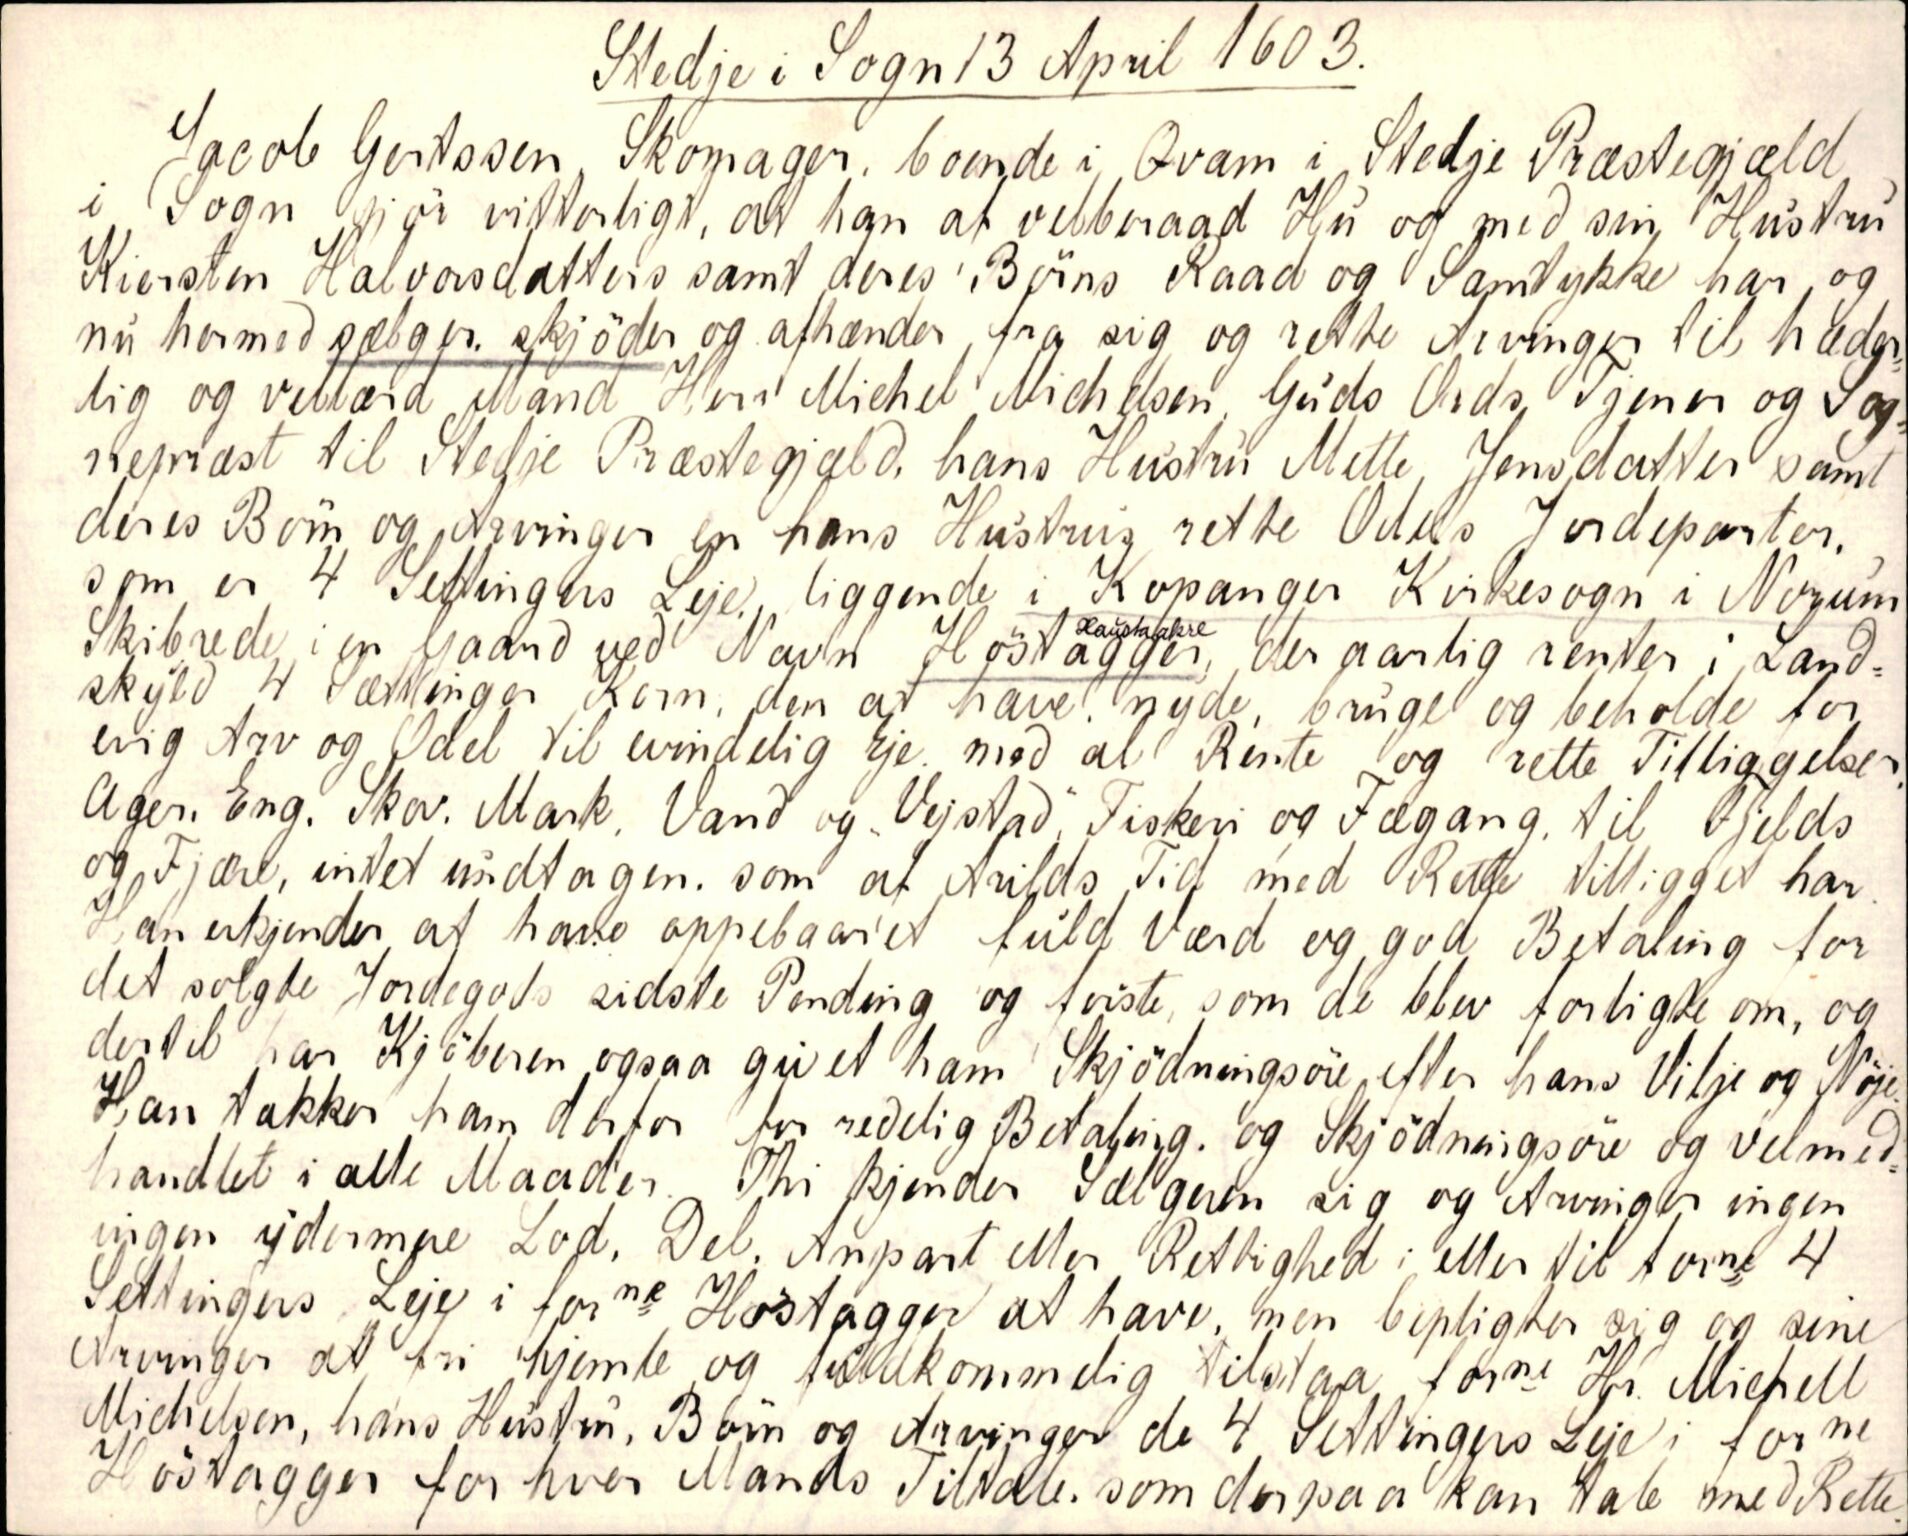 Stedje i Sogn 13 April 1603.
Jacob Gertssen, Skomager, boende i Qvam i Stedje Præstegjæld
i Sogn gjör vitterligt, at han af velberaad Hu og med sin Hustru
Kiersten Halvorsdatters samt deres Börns Raad og Samtykke har og
nu hermed sælger, skjöder og afhænder fra sig og rette Arvinger til hæder-
lig og vellærd Mand Herr Michel Michelsen, Guds Ords Tjener og Sog-
nepræst til Stedje Præstegjæld, hans Hustru Mette Jensdatter samt
deres Börn og Arvinger en hans Hustrus rette Odels Jordeparter,
som er 4 Settingers Leje, liggende i Kopanger Kirkesogn i Norum
Skibrede i en Gaard ved Navn Höstagger, der aarlig renter i Land-
Haustaakre
skyld 4 Sættinger Korn, den at have, nyde, bruge og beholde for
evig Arv og Odel til evindelig Eje med al Rente og rette Tilliggelser,
Ager, Eng, Skov, Mark, Vand og "Vejstad", Fiskeri og Fægang, til Fjelds
og Fjære, intet undtagen, som af Arilds Tid med Rette tilligget har.
Han erkjender at have oppebaaret fuld Værd og god Betaling for
det solgte Jordegods sidste Pending og förste, som de blev forligte om, og
dertil har Kjöberen ogsaa givet ham Skjödningsöre efter hans Vilje og Nöje.
Han takker ham derfor for redelig Betaling, og Skjödningsöre og velmed-
handlet i alle Maader. Thi kjender Sælgeren sig og Arvinger ingen
ingen ydermere Lod, Del, Anpart eller Rettighed i eller til forne 4
Settingers Leje i forne Höstagger at have, men bepligter sig og sine
Arvinger at fri hjemle og fuldkommelig tilstaa forne Hr. Michell
Michelsen, hans Hustru, Börn og Arvinger de 4 Settingers Leje i forne
Höstagger for hver Mands Tiltale, som derpaa kan tale med Rette.